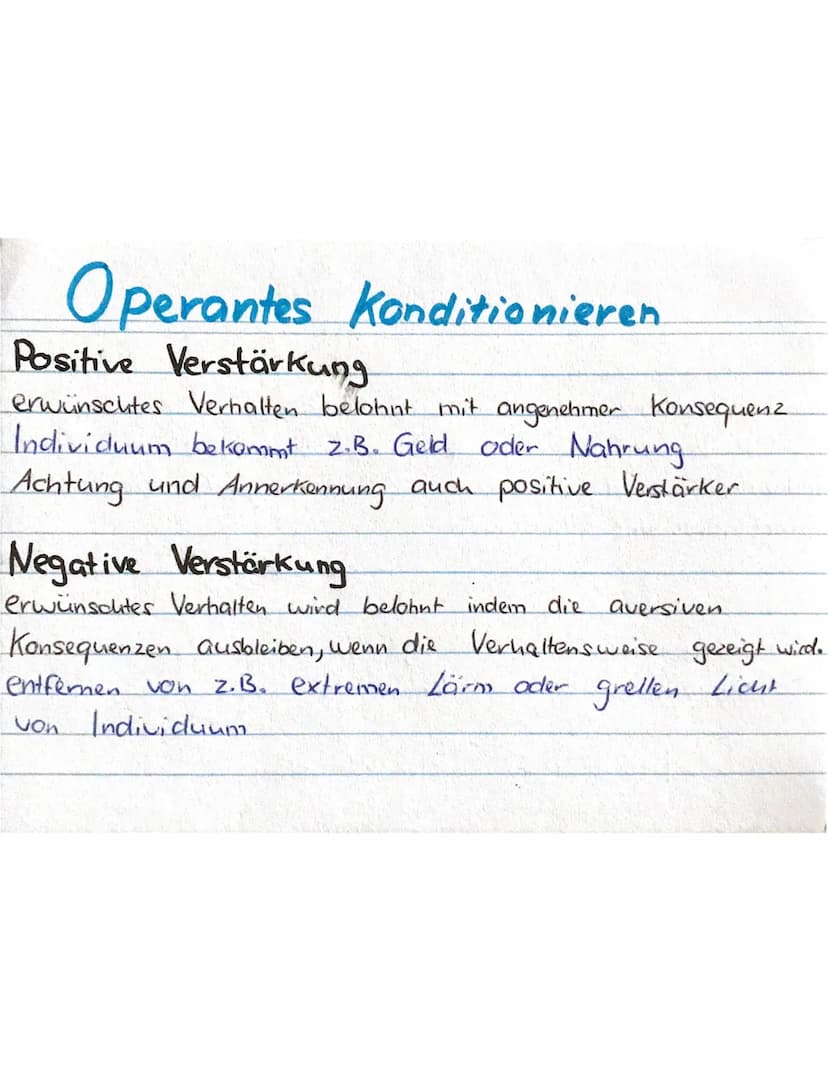 Operantes Konditionieren
Positive Verstärkung
erwünschtes Verhalten belohnt mit angenehmer Konsequenz
Individuum bekommt z.B. Geld oder Nahrung
Achtung und Annerkennung auch positive Verstärker
Negative Verstärkung
erwünschtes Verhalten wird belohnt indem die aversiven
Konsequenzen ausbleiben, wenn die Verhaltensweise gezeigt wird.
entfernen von z.B. extremen Lärm oder grellen Licht
von Individuum